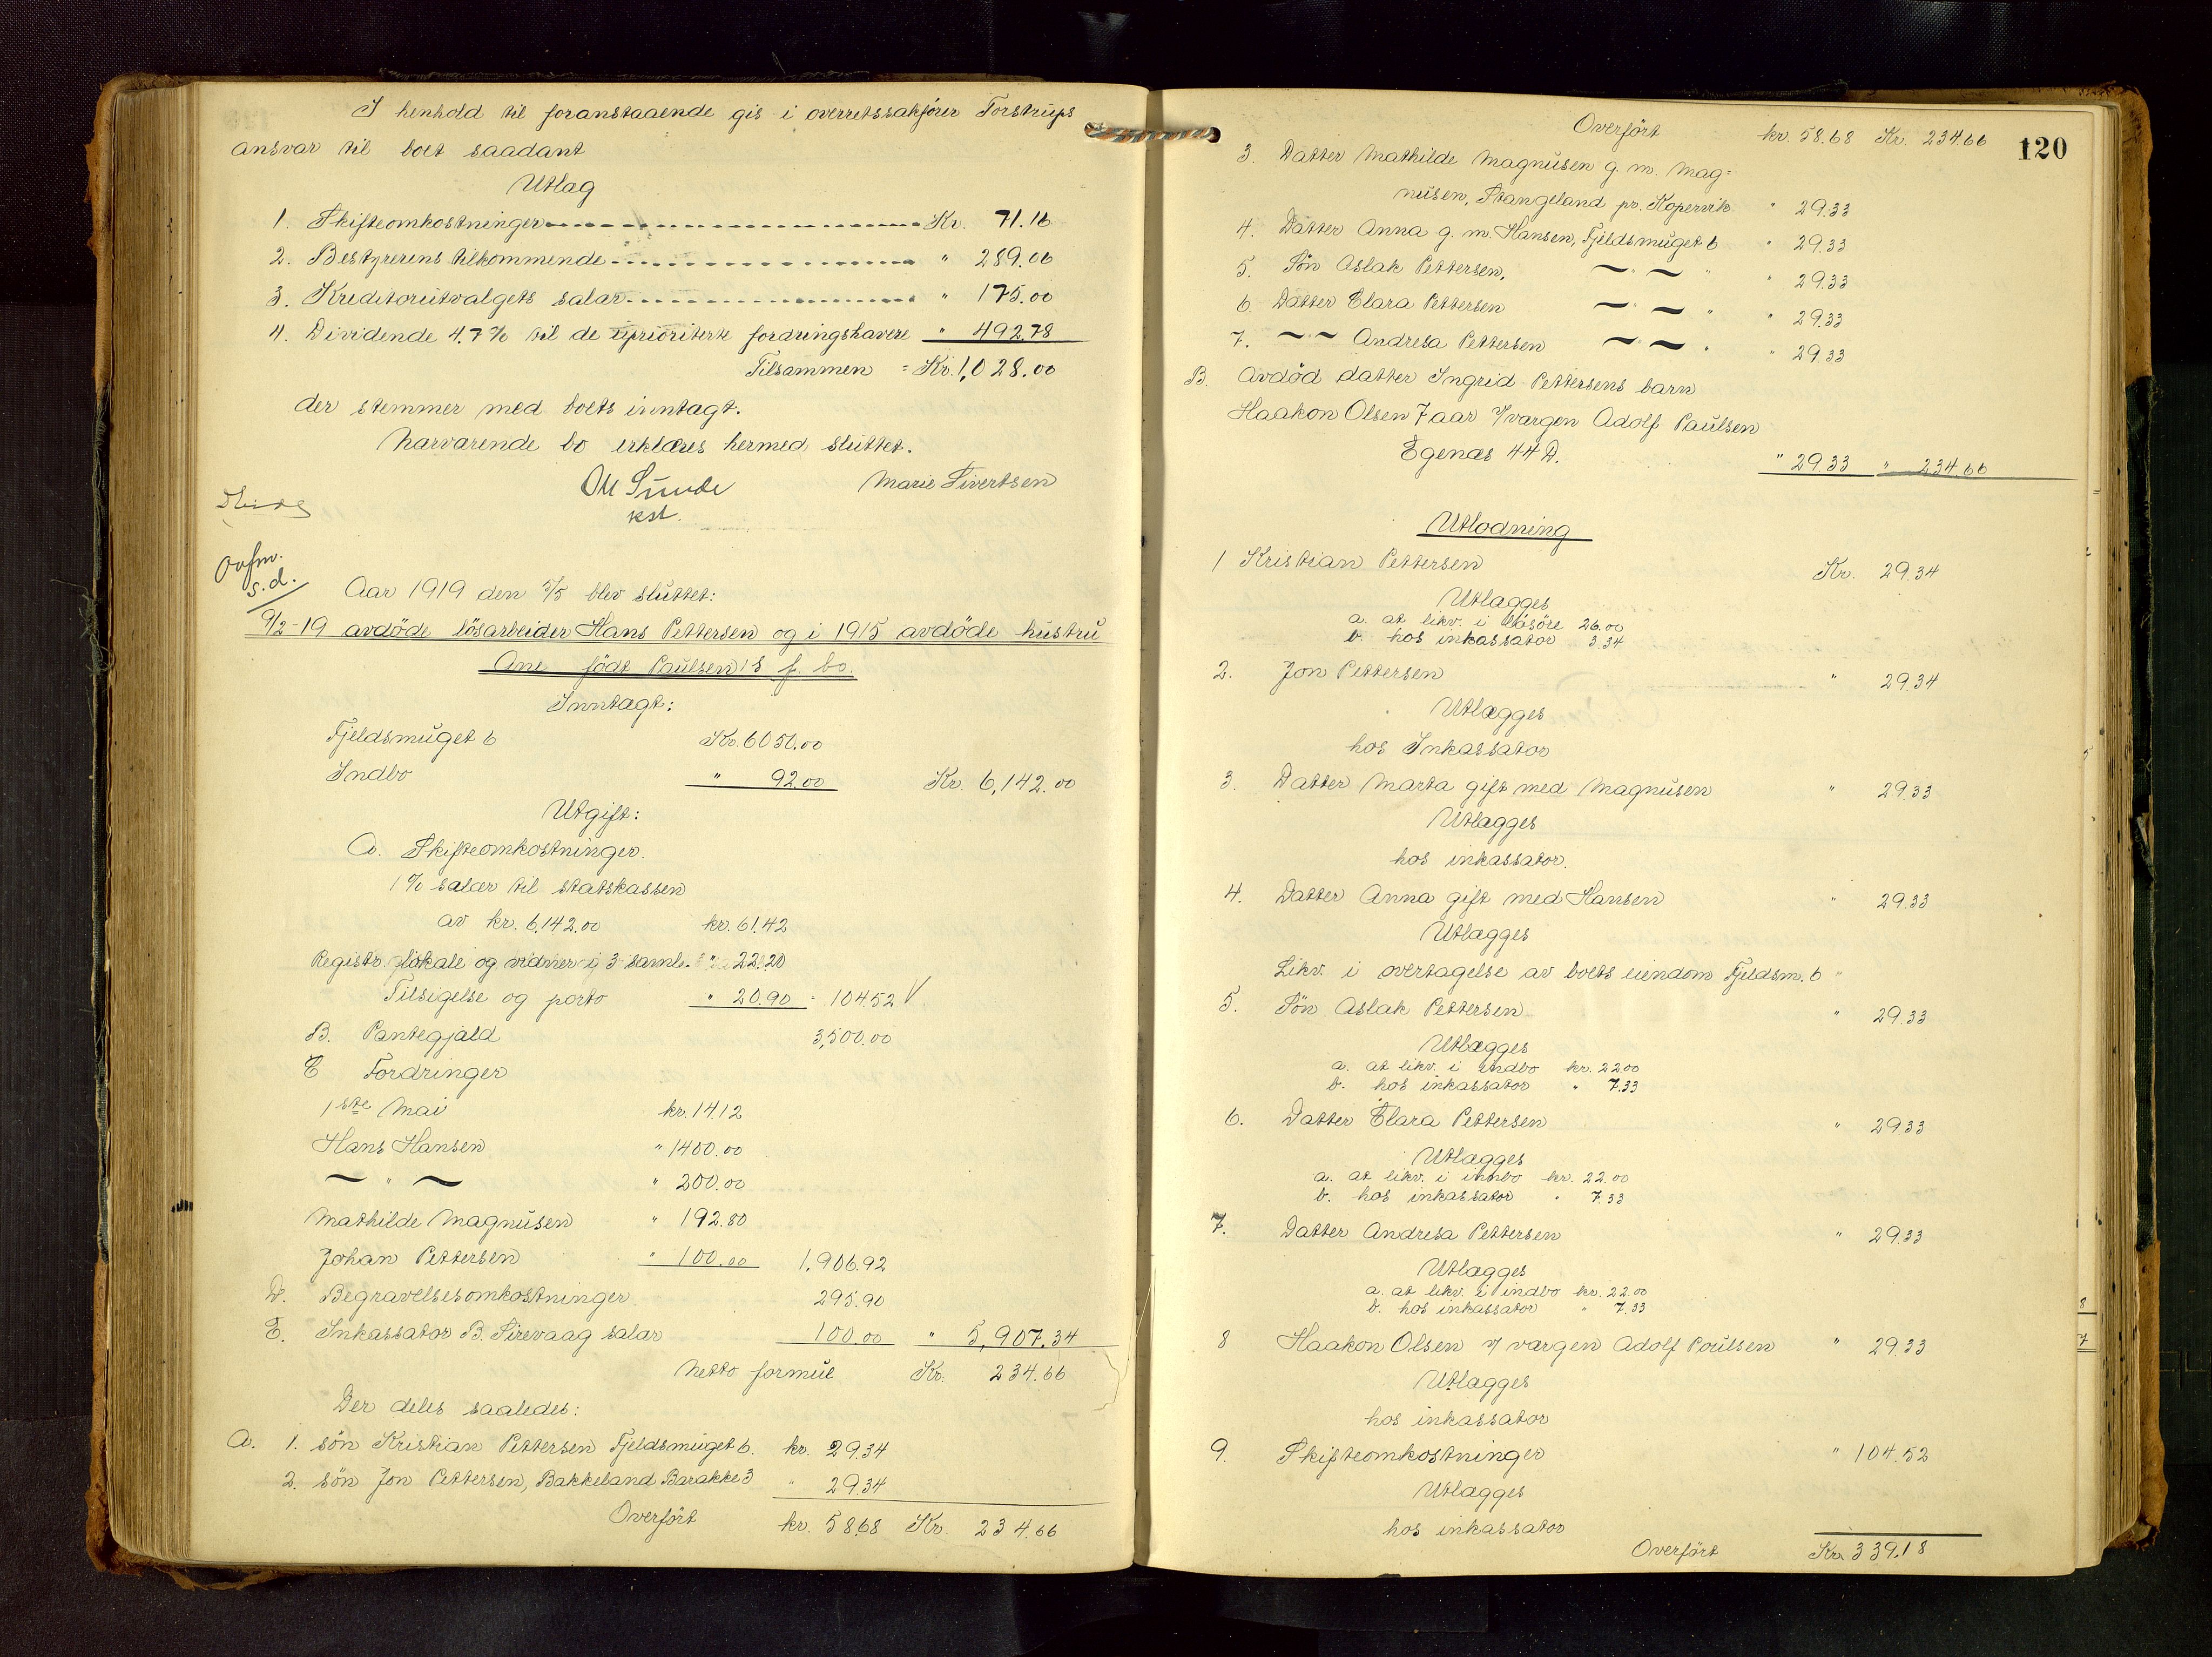 I henhold til foranstaaende gis i overretssakfører Torstrups
ansvar til boet saadant
Utlag
1. Skifteomkostninger Kr. 71.16
2. Bestyrerens tilkommende " 289.06
3. Kreditorutvalgets salar " 175.00
4. Dividende 4.7% til de uprioriterte fordringshavere " 492.78
Tilsammen = Kr. 1,028.00
der stemmer med boets inntagt.
Nærværende bo erklæres hermed sluttet.
Ole Sunde Marie Sivertsen
kst.
s.d.
Aar 1919 den 5/5 blev sluttet:
9/2-19 avdøde løsarbeider Hans Pettersen og i 1915 avdøde hustru
Ane født Paulsen's f. bo.
Inntagt:
Fjeldsmuget 6 Kr. 6050.00
Indbo " 92.00 Kr. 6,142.00
Utgift:
A. Skifteomkostninger.
1% salær til statskassen
av kr. 6,142.00 kr. 61.42
Registr. lokale og vidner i 3 saml. " 22.20
Tilsigelse og porto " 20.90 = 104.52 V
B. Pantegjæld 3,500.00
C Fordringer
1ste Mai kr. 14.12
Hans Hansen " 1400.00
— " — " 200.00
Mathilde Magnusen " 192.80
Johan Pettersen " 100.00 1,906.92
D. Begravelsesomkostninger 295.90
E. Inkassator B. Sirevaag salar 100.00 " 5,907.34
Netto formue Kr. 234.66
Der deles saaledes:
A. 1. søn Kristian Pettersen Fjeldsmuget 6. kr. 29.34
2. søn Jon Pettersen, Bakkeland Barakke 3 " 29.34
Overført kr. 58.68 Kr. 234.66
120
Overført kr. 58.68 Kr. 234.66
3. Datter Mathilde Magnusen g. m. Mag=
nusen, Stangeland pr. Kopervik " 29.33
4. Datter Anna g. m. Hansen, Fjeldsmuget 6 " 29.33
5. Søn Aslak Pettersen, — " — " " 29.33
6. Datter Clara Pettersen — " — " " 29.33
7. — " — Andrea Pettersen — " — " " 29.33
B. Avdød datter Ingrid Pettersens barn
Haakon Olsen 7 aar v/ værgen Adolf Paulsen
Egenæs 44 D. " 29.33 " 234.66
Utlodning
1 Kristian Pettersen Kr. 29.34
Utlægges
a. at likv. i løsøre 26.00
b. hos inkassator 3.34
2. Jon Pettersen " 29.34
Utlægges
hos Inkassator
3. Datter Marta gift med Magnusen " 29.33
Utlægges
hos inkassator.
4. Datter Anna gift med Hansen " 29.33
Utlægges
Likv. i overtagelse av boets eiendom Fjeldsm. 6 "
5. Søn Aslak Pettersen " 29.33
Utlægges
a. at likv. i indbo kr. 22.00
b. hos inkassator " 7.33
6. Datter Clara Pettersen " 29.33
Utlægges
a. at likv. i innbo kr. 22.00
b. hos inkassator " 7.33
7. Datter Andrea Pettersen " 29.33
Utlægges
a. at likv. i indbo kr. 22.00
b. hos inkassator " 7.33
8 Haakon Olsen v/ værgen Adolf Poulsen " 29.33
Utlægges
hos inkassator
9. Skifteomkostninger " 104.52
Utlægges
hos inkassator
Overført Kr. 339.18